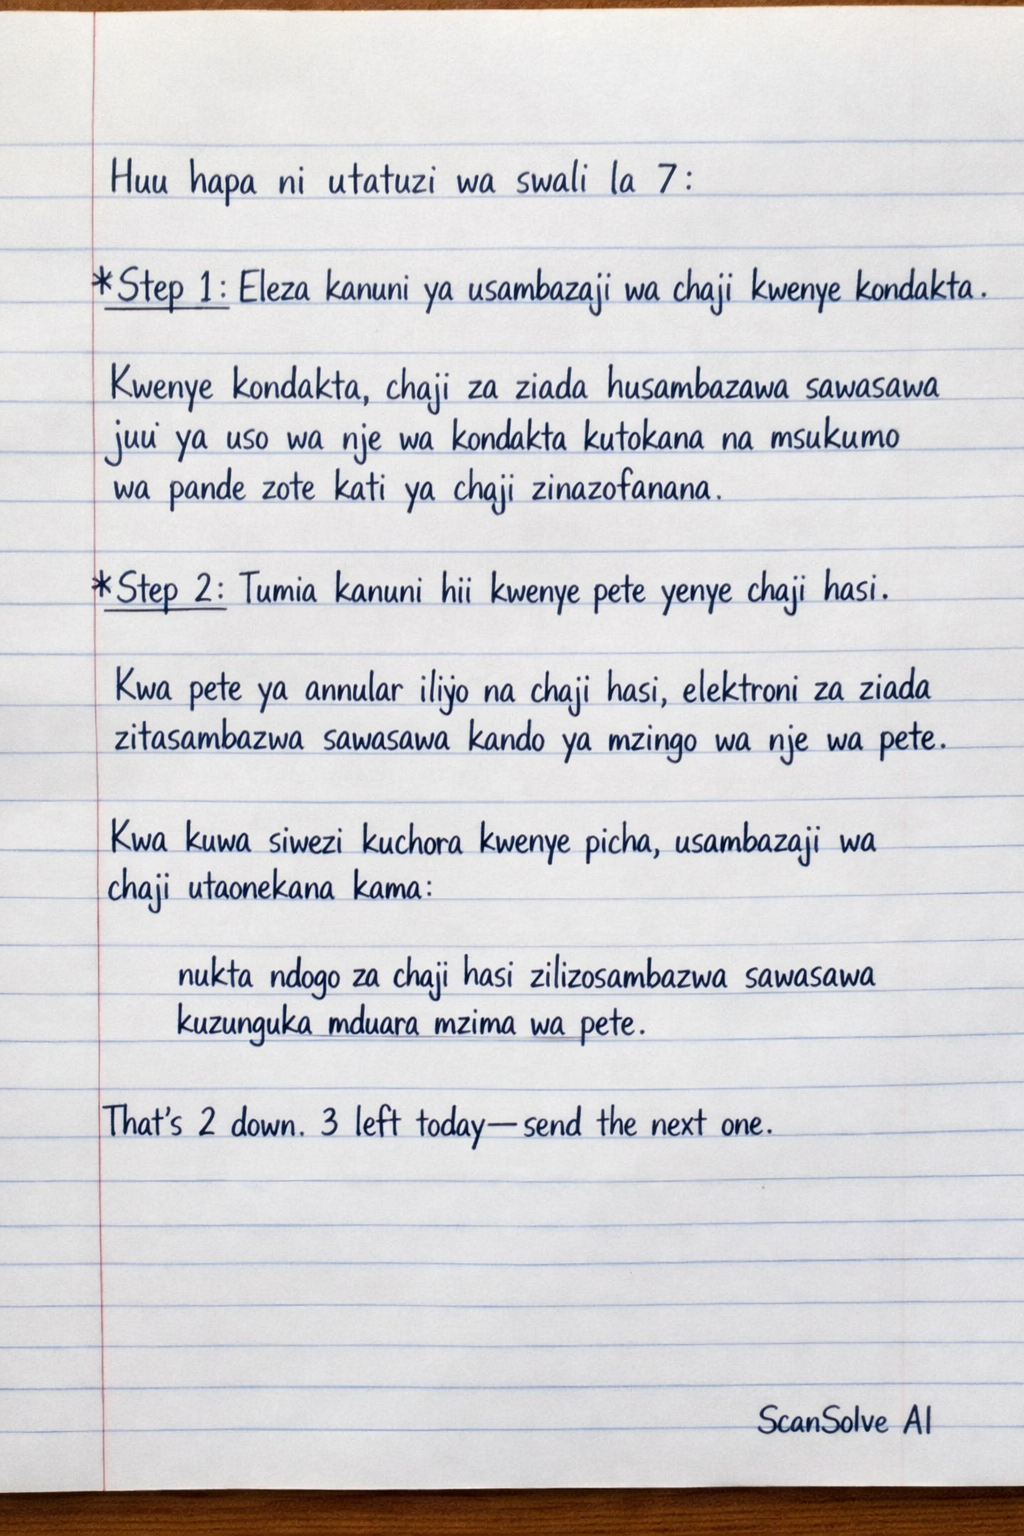 Huu hapa ni utatuzi wa swali la 7:
*Step 1: Eleza kanuni ya usambazaji wa chaji kwenye kondakta.
Kwenye kondakta, chaji za ziada husambazawa sawasawa
juu ya uso wa nje wa kondakta kutokana na msukumo
wa pande zote kati ya chaji zinazofanana.
*Step 2: Tumia kanuni hii kwenye pete yenye chaji hasi.
Kwa pete ya annular iliyo na chaji hasi, elektroni za ziada
zitasambazwa sawasawa kando ya mzingo wa nje wa pete.
Kwa kuwa siwezi kuchora kwenye picha, usambazaji wa
chaji utaonekana kama:
nukta ndogo za chaji hasi zilizosambazwa sawasawa
kuzunguka mduara mzima wa pete.
That's 2 down. 3 left today—send the next one.
ScanSolve AI